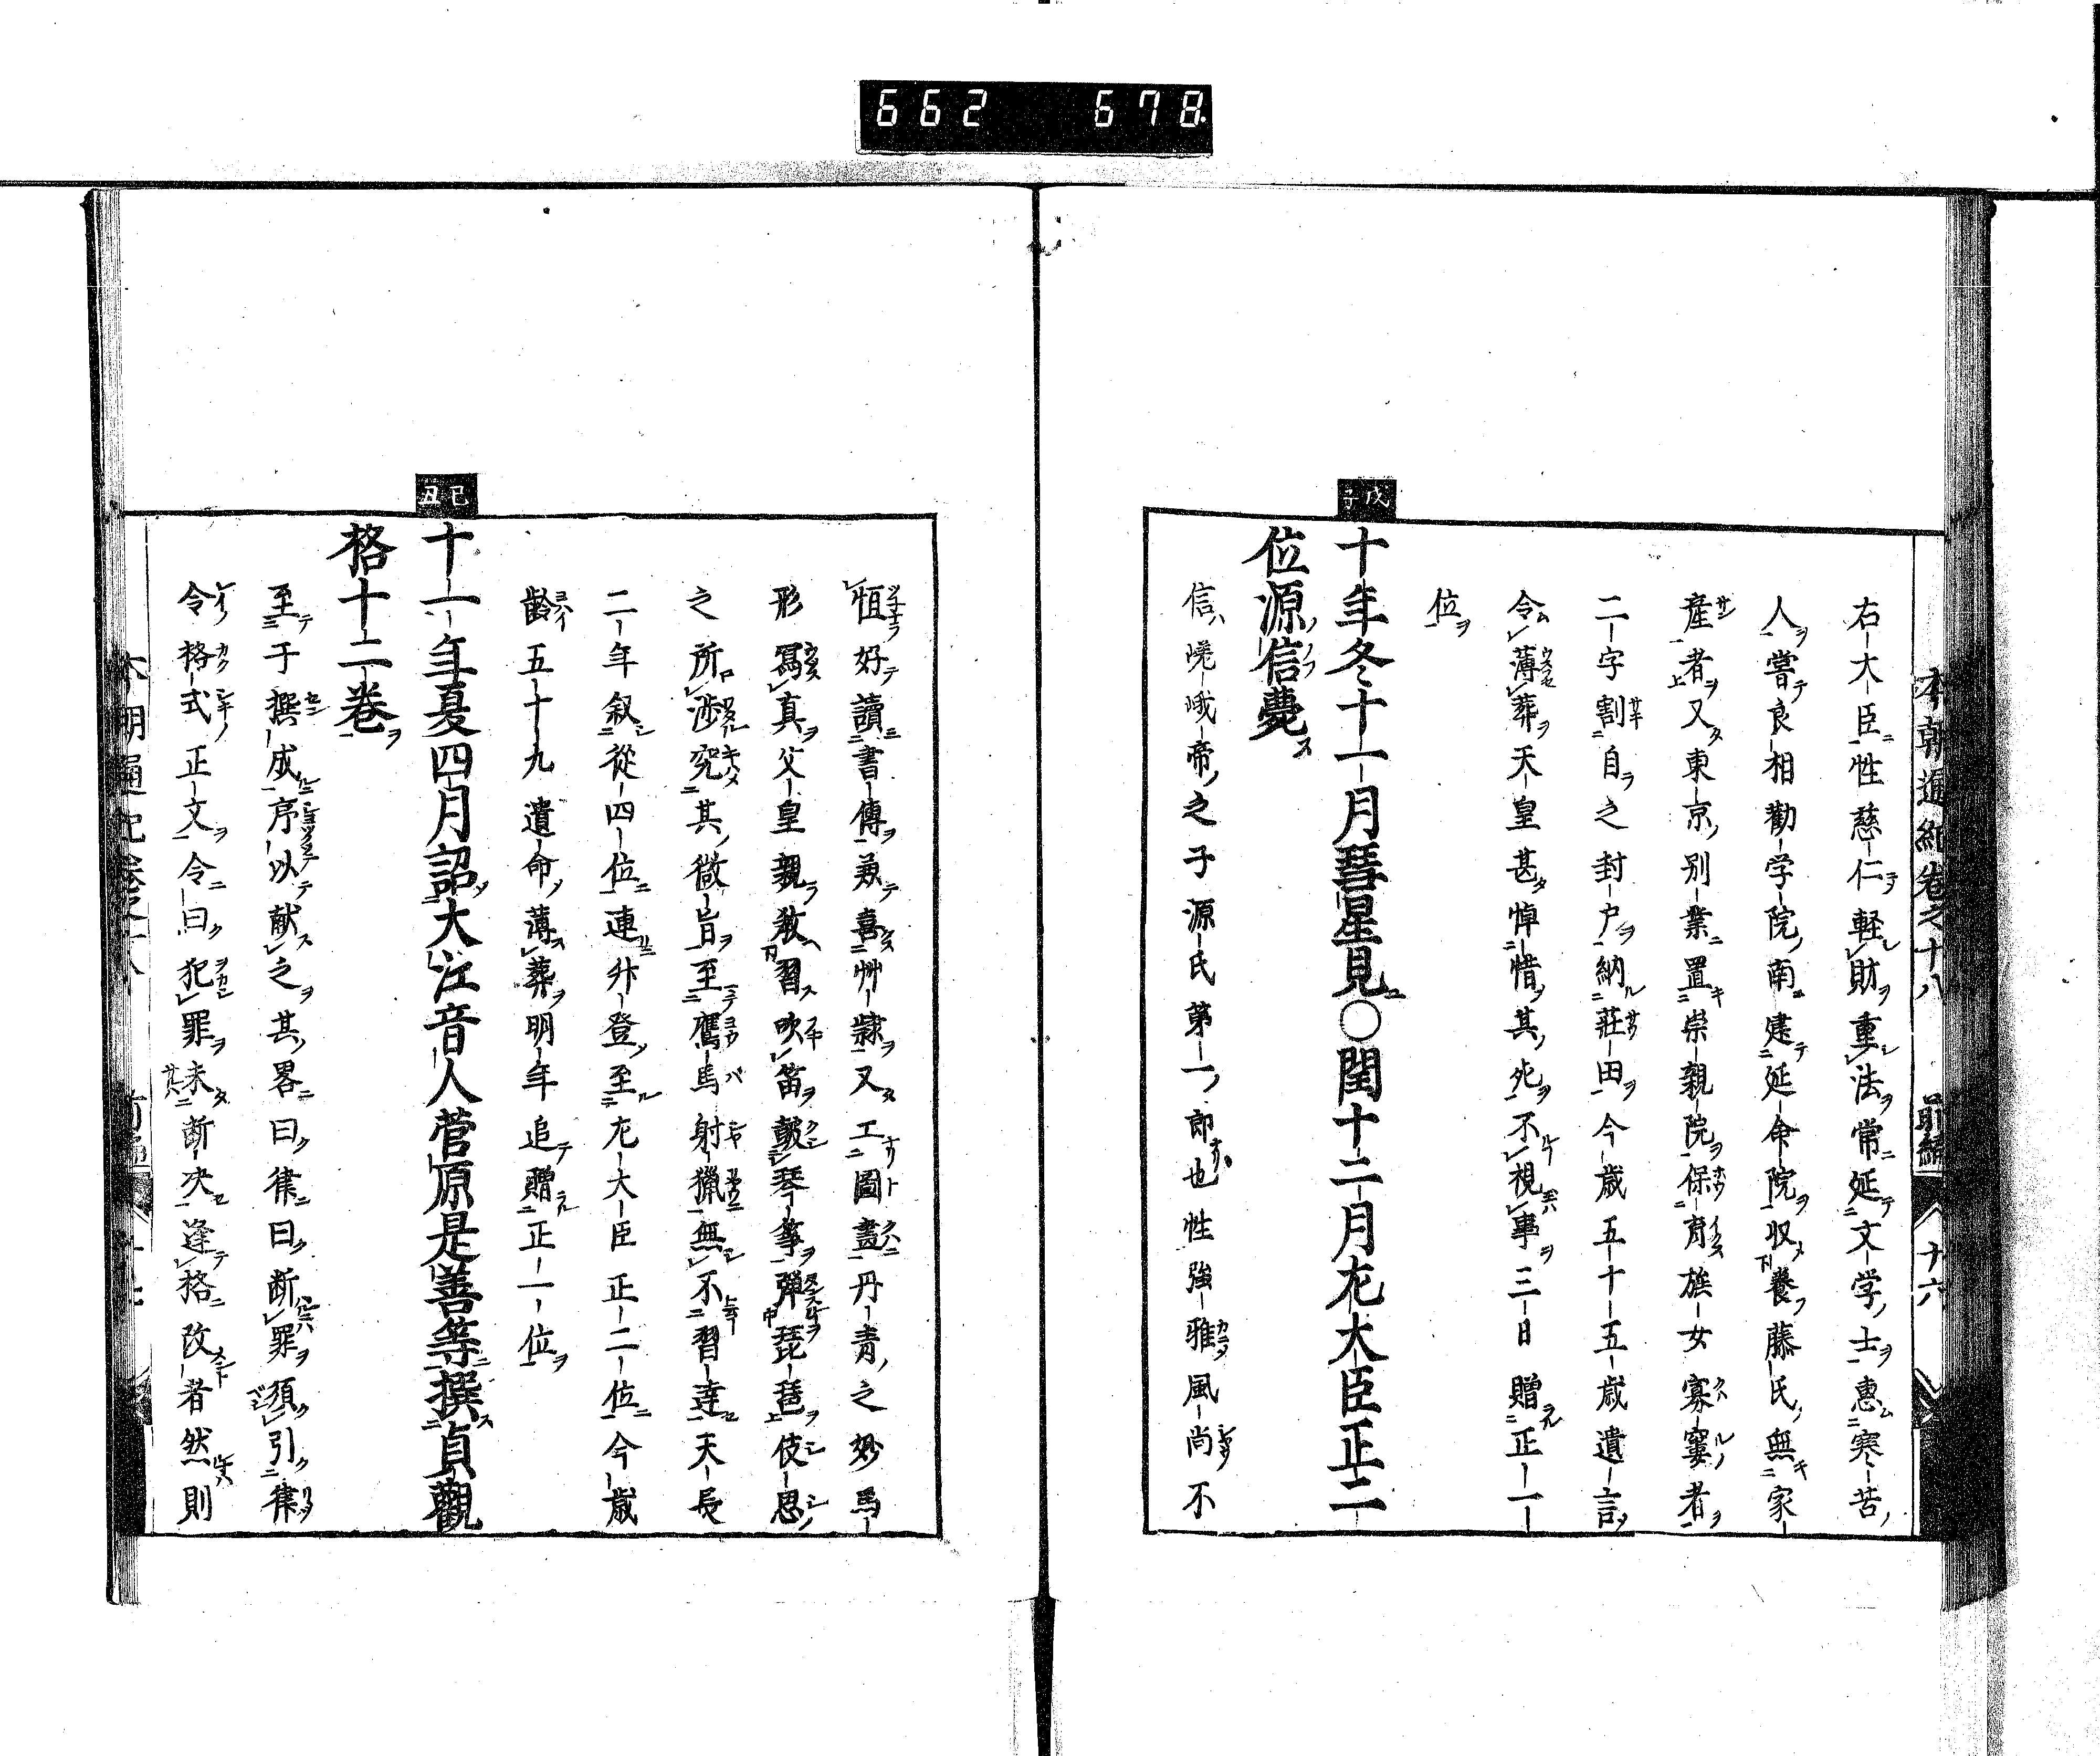 662 678.
本朝通紀卷之十八 前編 十六
右大臣性慈仁軽財重法常延文学士惠寒苦
人嘗良相勸学院南建延命院収養藤氏無家
産者又東京別業置崇親院保育族女寡窶者
二字割自之封户納莊田今歳五十五歳遺言
令薄葬天皇甚悼惜其死不視事三日贈正一
位
戊子
十年冬十一月彗星見〇閏十二月左大臣正二
位源信薨
信嵯峨帝之子源氏第一郎也性強雅風尚不
恒好讀書傳兼喜艸隷又工圖畫丹青之妙馬
形寫真父皇親教習吹笛皷琴筝彈琵琶伎思
之所渉究其微旨至鷹馬射獵無不習達天長
二年叙從四位連升登至左大臣正二位今歳
齡五十九遺命薄葬明年追贈正一位
己丑
十一年夏四月詔大江音人菅原是善等撰貞觀
格十二卷
至于撰成序以献之其畧曰律曰断罪須引律
令格式正文令曰犯罪未断决逢格改者然則